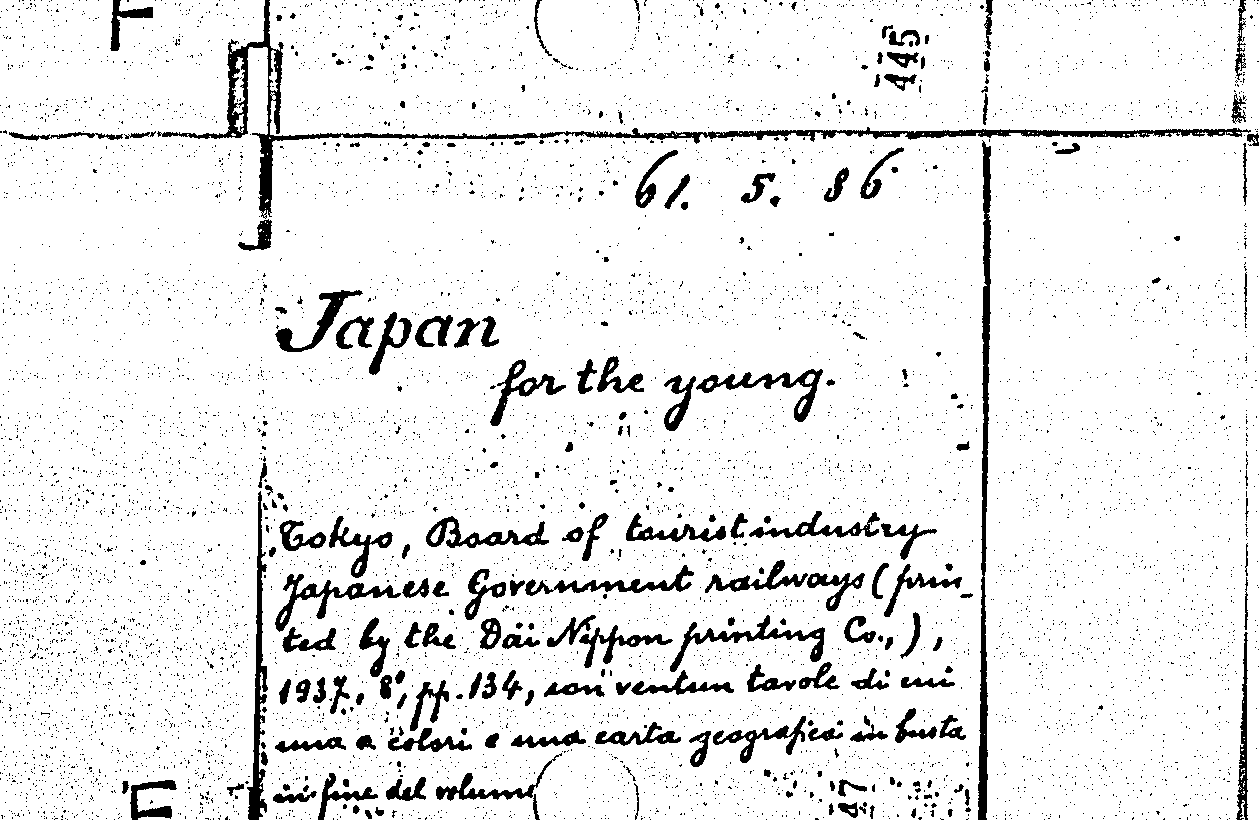 445
61. 5. 86
Japan
for the young.
Tokyo, Board of tourist industry
Japanese Government railways (prin_
ted by the Dai Nippon printing Co.,) ,
1937, 8°, pp. 134, con ventun tavole di cui
una a colori e una carta geografica in busta
in fine del volume
47